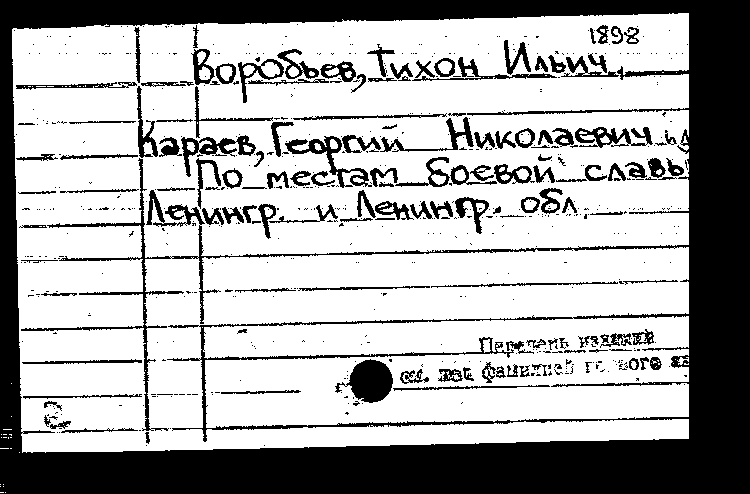 1898
Воробьев, Тихон Ильич,
Караев, Георгий Николаевич и
По местам боевой славы
Ленингр. и Ленингр. обл.
Перечень изданий
см. под фамилией первого
2